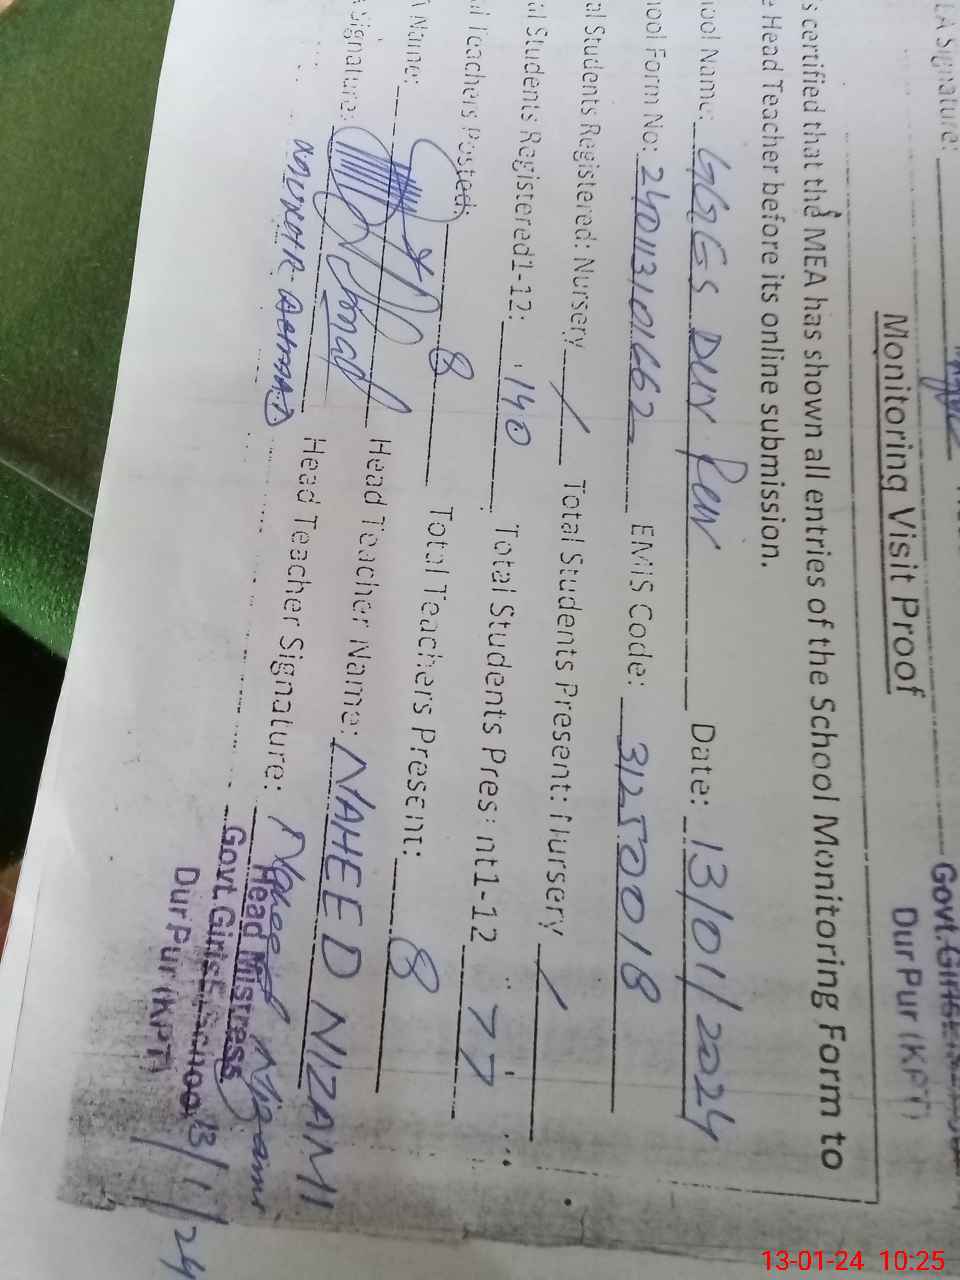 LA Signature:
Govt.Girls
DurPur (KPT)
Monitoring Visit Proof
s certified that the MEA has shown all entries of the School Monitoring Form to
e Head Teacher before its online submission.
ool Name: GGES DUR PUR Date: 13/01/2024
ool Form No: 240113101662 EMIS Code: 31250018
al Students Registered: Nursery / Total Students Present: Nursery /
al Students Registered1-12: 140 Total Students Present1-12 77
al Teachers Posted: 8 Total Teachers Present: 8
A Name: Head Teacher Name: NAHEED NIZAMI
A Signature: Head Teacher Signature: Naheed Nizami
Head Mistress
Govt. Girls E/School
DurPur (KPT)
13/1/24
13-01-24 10:25